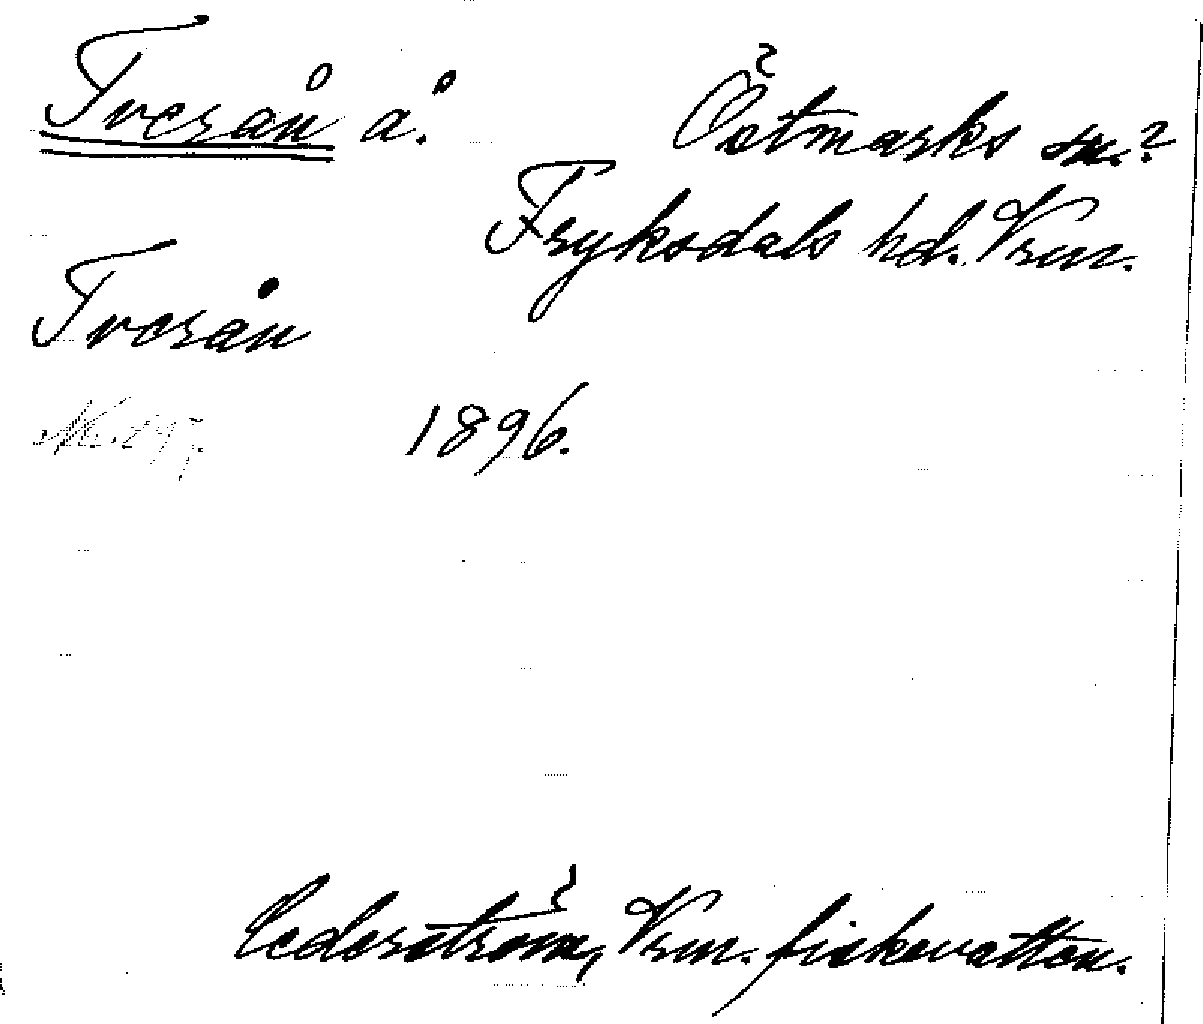 Tverån å.
Östmarks sn.?
Fryksdals hd. Vrm.
Tverån
1896.
Cederström, Vrm. fiskevatten.